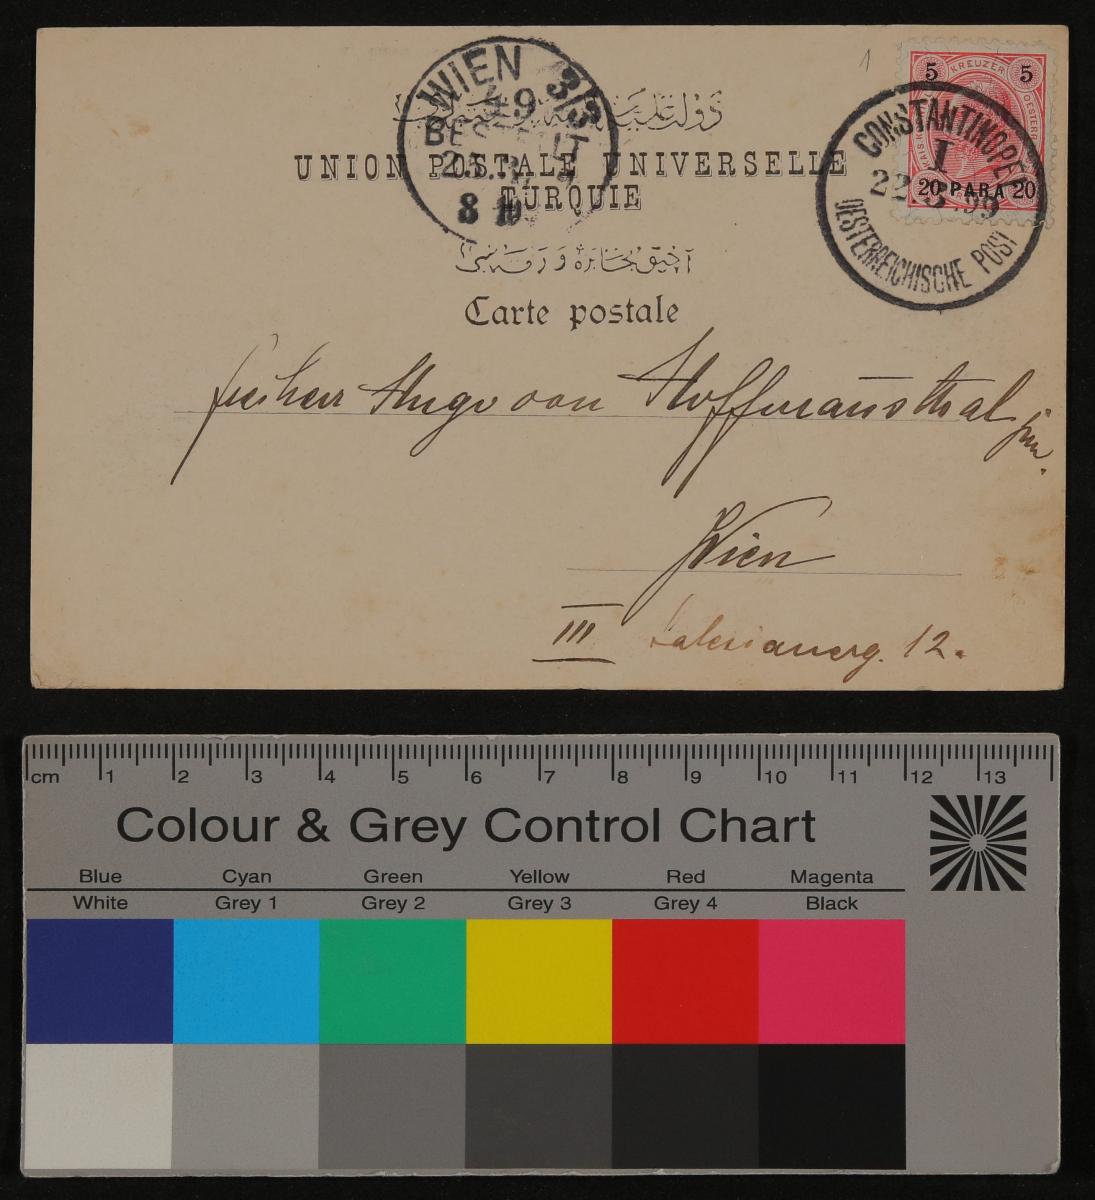 1
5 KREUZER 5
20 PARA 20
CONSTANTINOPEL
I
22 3 99
OESTERREICHISCHE POST
WIEN 3/3
49
BESTELLT
UNION POSTALE UNIVERSELLE
TURQUIE
Carte postale
Hugo von Hoffmansthal jun.
Wien
III Salesianerg. 12.
cm 1 2 3 4 5 6 7 8 9 10 11 12 13
Colour & Grey Control Chart
Blue Cyan Green Yellow Red Magenta
White Grey 1 Grey 2 Grey 3 Grey 4 Black